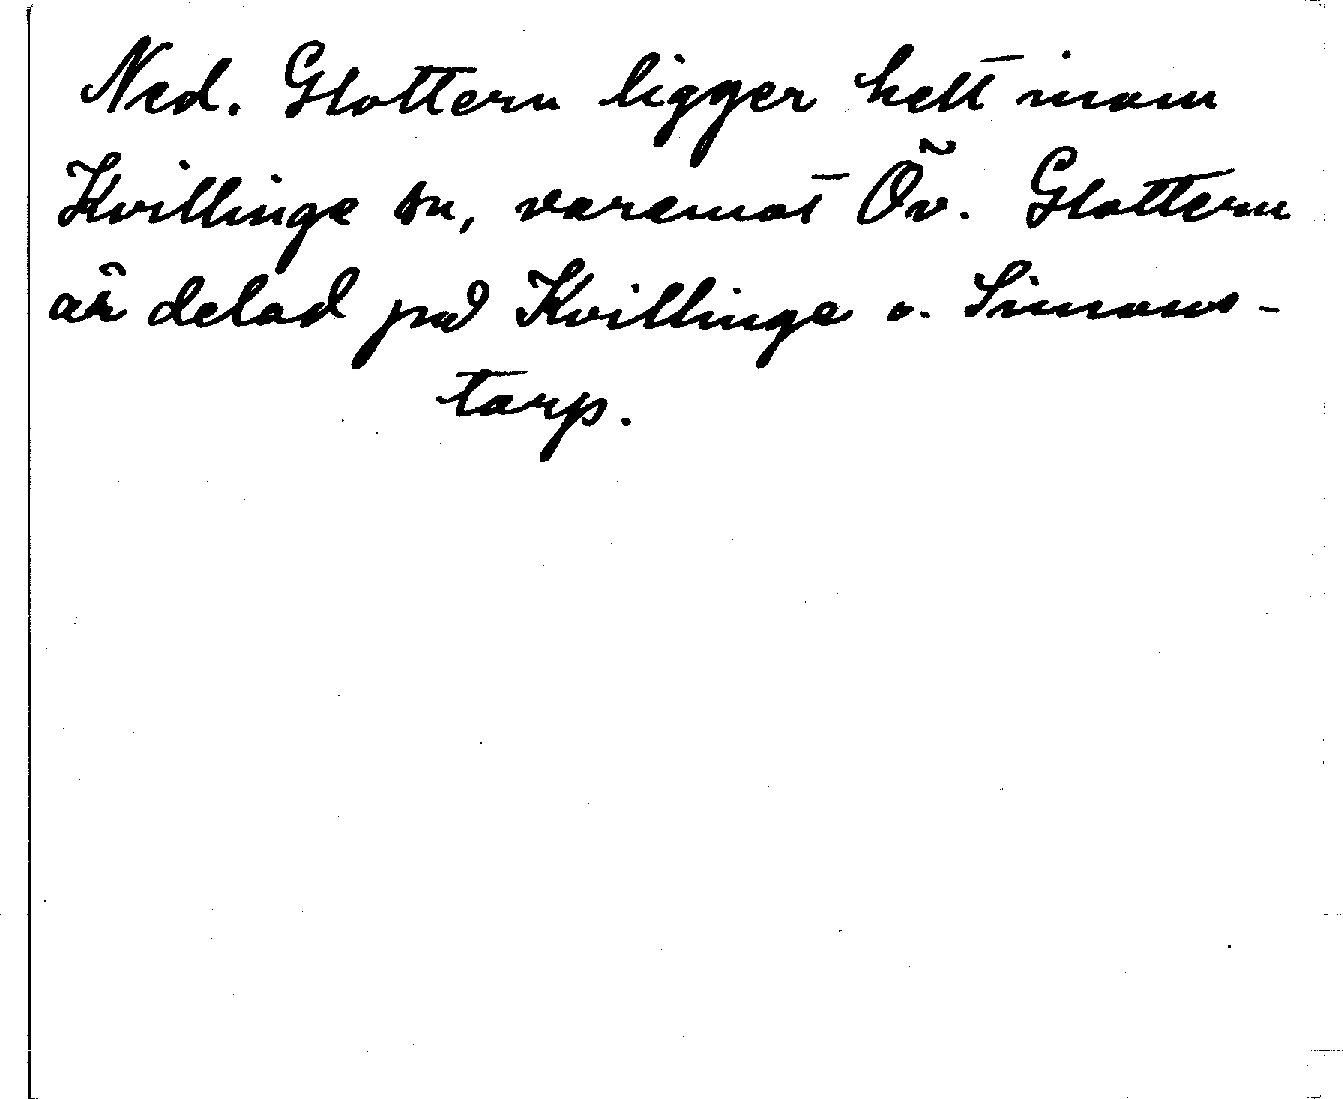 Ned. Glottern ligger helt inom
Kvillinge sn, varemot Öv. Glottern
är delad på Kvillinge o. Simons-
torp.